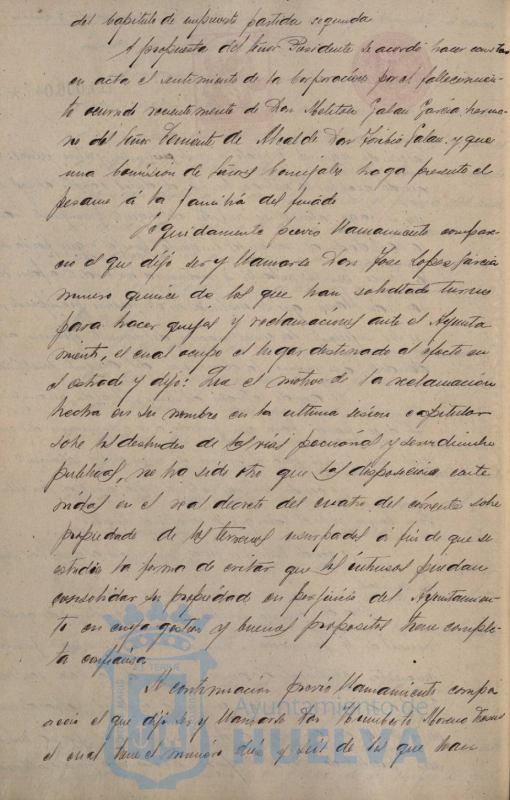 del capitulo de imprevisto partida segunda
A propuesta del Señor Presidente se acordó hacer constar
en acta el sentimiento de la Corporación por el fallecimien-
to ocurrido recientemente de Don Melitón Galan Garcia herma-
no del Señor Teniente de Alcalde Don Toribio Galan. y que
una Comisión de Señores Concejales haga presente el
pesame á la familia del finado
Seguidamente previo llamamiento compare-
ce el que dijo ser y llamarse Don Jose Lopez Garcia
numero quince de los que han solicitado turno
para hacer quejas y reclamaciones ante el Ayunta
miento, el cual ocupó el lugar destinado al efecto en
el estrado y dijo: Que el motivo de la reclamación
hecha en su nombre en la ultima sesion capitular
sobre los deslindes de las vias pecuarias y servidumbre
publicas, no ha sido otro que las disposicines conte
nidas en el real decreto del cuatro del corriente sobre
propiedade de los terrenos usurpados á fin de que se
estudie la forma de evitar que los intrusos puedan
consolidar su propiedad en perjuicio del Ayuntamien-
to en cuya gestion y buenos propositos tiene comple-
ta confianza
A continuacion previo llamamiento compa
reció el que dijo ser y llamarse Don Humberto Moreno
el cual tiene el numero diez y seis de los que han
Ayuntamiento de
HUELVA